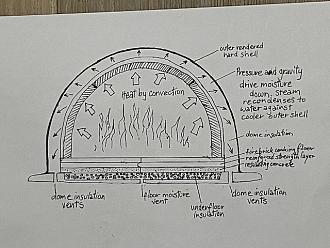 outer rendered
hard shell
Pressure and gravity
drive moisture
down. Steam
recondenses to
water against
cooler outer shell
Heat by convection
dome insulation
fire brick cooking floor
reinforced strength layer
insulating concrete
dome insulation
vents
floor moisture
vent
underfloor
insulation
dome insulation
vents